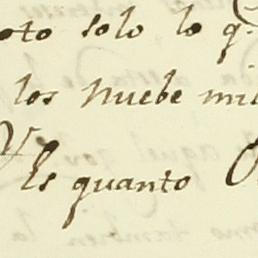 oto solo lo q.
los nuebe mil
Es quanto